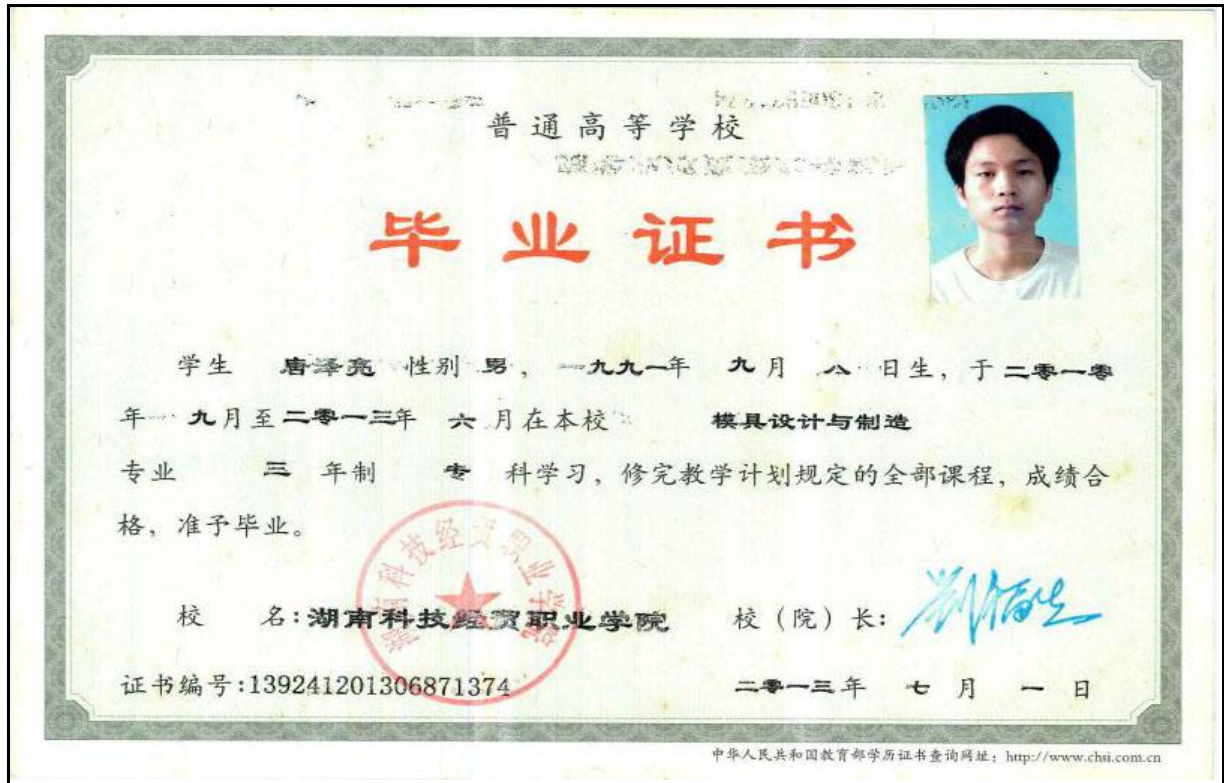 普通高等学校
毕业证书
学生 唐泽亮 性别 男，一九九一年 九月 八 日生，于二零一零
年 九月至二零一三年 六 月在本校 模具设计与制造
专业 三 年制 专 科学习，修完教学计划规定的全部课程，成绩合
格，准予毕业。
湖南科技经贸职业学院
校 名：湖南科技经贸职业学院 校（院）长：
证书编号：139241201306871374 二零一三年 七 月 一 日
中华人民共和国教育部学历证书查询网址：http://www.chsi.com.cn